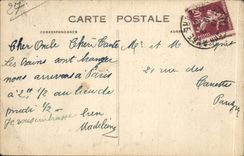 27
CARTE POSTALE
CORRESPONDANCE
Cher Oncle Chère Tante
Les trains ont changé
nous arrivons à Paris
à 2h 1/2 au lieu de
midi 1/2
Je vous embrasse
Madeleine
Mr et Mme
21 rue des
Canettes
Paris